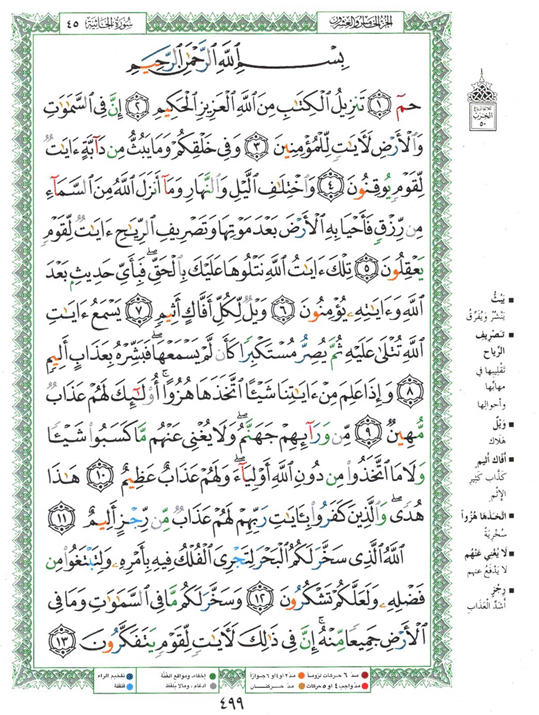 ٤٥
سُورَةُ الجَاثِيَةِ
الجُزْءُ الخَامِسُ وَالعِشْرُونَ
بِسْمِ ٱللَّهِ ٱلرَّحْمَٰنِ ٱلرَّحِيمِ
حمٓ ١ تَنزِيلُ ٱلْكِتَٰبِ مِنَ ٱللَّهِ ٱلْعَزِيزِ ٱلْحَكِيمِ ٢ إِنَّ فِى ٱلسَّمَٰوَٰتِ
وَٱلْأَرْضِ لَءَايَٰتٍ لِّلْمُؤْمِنِينَ ٣ وَفِى خَلْقِكُمْ وَمَا يَبُثُّ مِن دَآبَّةٍ ءَايَٰتٌ
لِّقَوْمٍ يُوقِنُونَ ٤ وَٱخْتِلَٰفِ ٱلَّيْلِ وَٱلنَّهَارِ وَمَآ أَنزَلَ ٱللَّهُ مِنَ ٱلسَّمَآءِ
مِن رِّزْقٍ فَأَحْيَا بِهِ ٱلْأَرْضَ بَعْدَ مَوْتِهَا وَتَصْرِيفِ ٱلرِّيَٰحِ ءَايَٰتٌ لِّقَوْمٍ
يَعْقِلُونَ ٥ تِلْكَ ءَايَٰتُ ٱللَّهِ نَتْلُوهَا عَلَيْكَ بِٱلْحَقِّ ۖ فَبِأَىِّ حَدِيثٍۭ بَعْدَ
ٱللَّهِ وَءَايَٰتِهِۦ يُؤْمِنُونَ ٦ وَيْلٌ لِّكُلِّ أَفَّاكٍ أَثِيمٍ ٧ يَسْمَعُ ءَايَٰتِ
ٱللَّهِ تُتْلَىٰ عَلَيْهِ ثُمَّ يُصِرُّ مُسْتَكْبِرًا كَأَن لَّمْ يَسْمَعْهَا ۖ فَبَشِّرْهُ بِعَذَابٍ أَلِيمٍ
٨ وَإِذَا عَلِمَ مِنْ ءَايَٰتِنَا شَيْـًٔا ٱتَّخَذَهَا هُزُوًا ۚ أُو۟لَٰٓئِكَ لَهُمْ عَذَابٌ
مُّهِينٌ ٩ مِّن وَرَآئِهِمْ جَهَنَّمُ ۖ وَلَا يُغْنِى عَنْهُم مَّا كَسَبُوا۟ شَيْـًٔا
وَلَا مَا ٱتَّخَذُوا۟ مِن دُونِ ٱللَّهِ أَوْلِيَآءَ ۖ وَلَهُمْ عَذَابٌ عَظِيمٌ ١٠ هَٰذَا
هُدًى ۖ وَٱلَّذِينَ كَفَرُوا۟ بِـَٔايَٰتِ رَبِّهِمْ لَهُمْ عَذَابٌ مِّن رِّجْزٍ أَلِيمٌ ١١
ٱللَّهُ ٱلَّذِى سَخَّرَ لَكُمُ ٱلْبَحْرَ لِتَجْرِىَ ٱلْفُلْكُ فِيهِ بِأَمْرِهِۦ وَلِتَبْتَغُوا۟ مِن
فَضْلِهِۦ وَلَعَلَّكُمْ تَشْكُرُونَ ١٢ وَسَخَّرَ لَكُم مَّا فِى ٱلسَّمَٰوَٰتِ وَمَا فِى
ٱلْأَرْضِ جَمِيعًا مِّنْهُ ۚ إِنَّ فِى ذَٰلِكَ لَءَايَٰتٍ لِّقَوْمٍ يَتَفَكَّرُونَ ١٣
الحِزْب
٥٠
يَبُثُّ
يَنْشُرُ وَيُفَرِّقُ
تَصْرِيفِ
الرِّيَاحِ
تَقْلِيبِهَا فِي
مَهَابِّهَا
وَأَحْوَالِهَا
وَيْلٌ
هَلَاكٌ
أَفَّاكٍ أَثِيمٍ
كَذَّابٍ كَثِيرِ
الإِثْمِ
اتَّخَذَهَا هُزُوًا
سُخْرِيَةً
لَا يُغْنِي عَنْهُم
لَا يَدْفَعُ عَنْهُم
رِجْزٍ
أَشَدِّ العَذَابِ
مدّ ٦ حركات لزوماً
مدّ ٢ او ٤ او ٦ جوازاً
إخفاء، ومواقع الغنّة
تفخيم الراء
مدّ واجب ٤ او ٥ حركات
مدّ حركتان
ادغام، وما لا يلفظ
قلقلة
٤٩٩